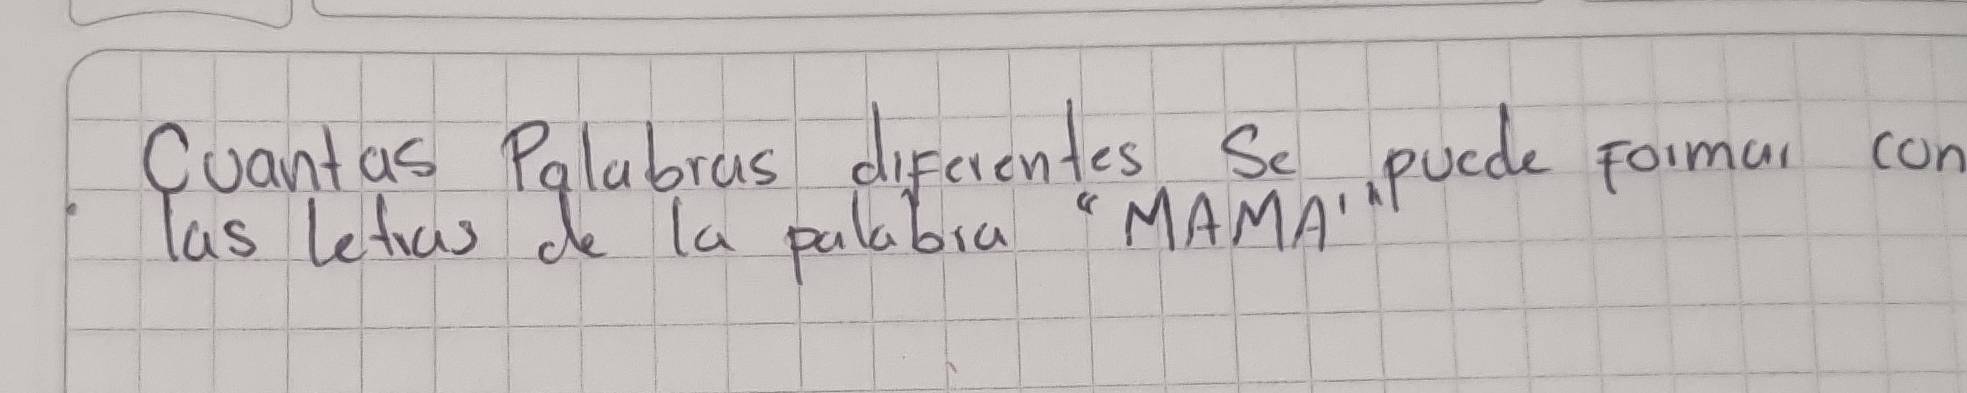 Cuantas Palabras diferentes Se puede Formar con
las letras de la palabra "MAMA"